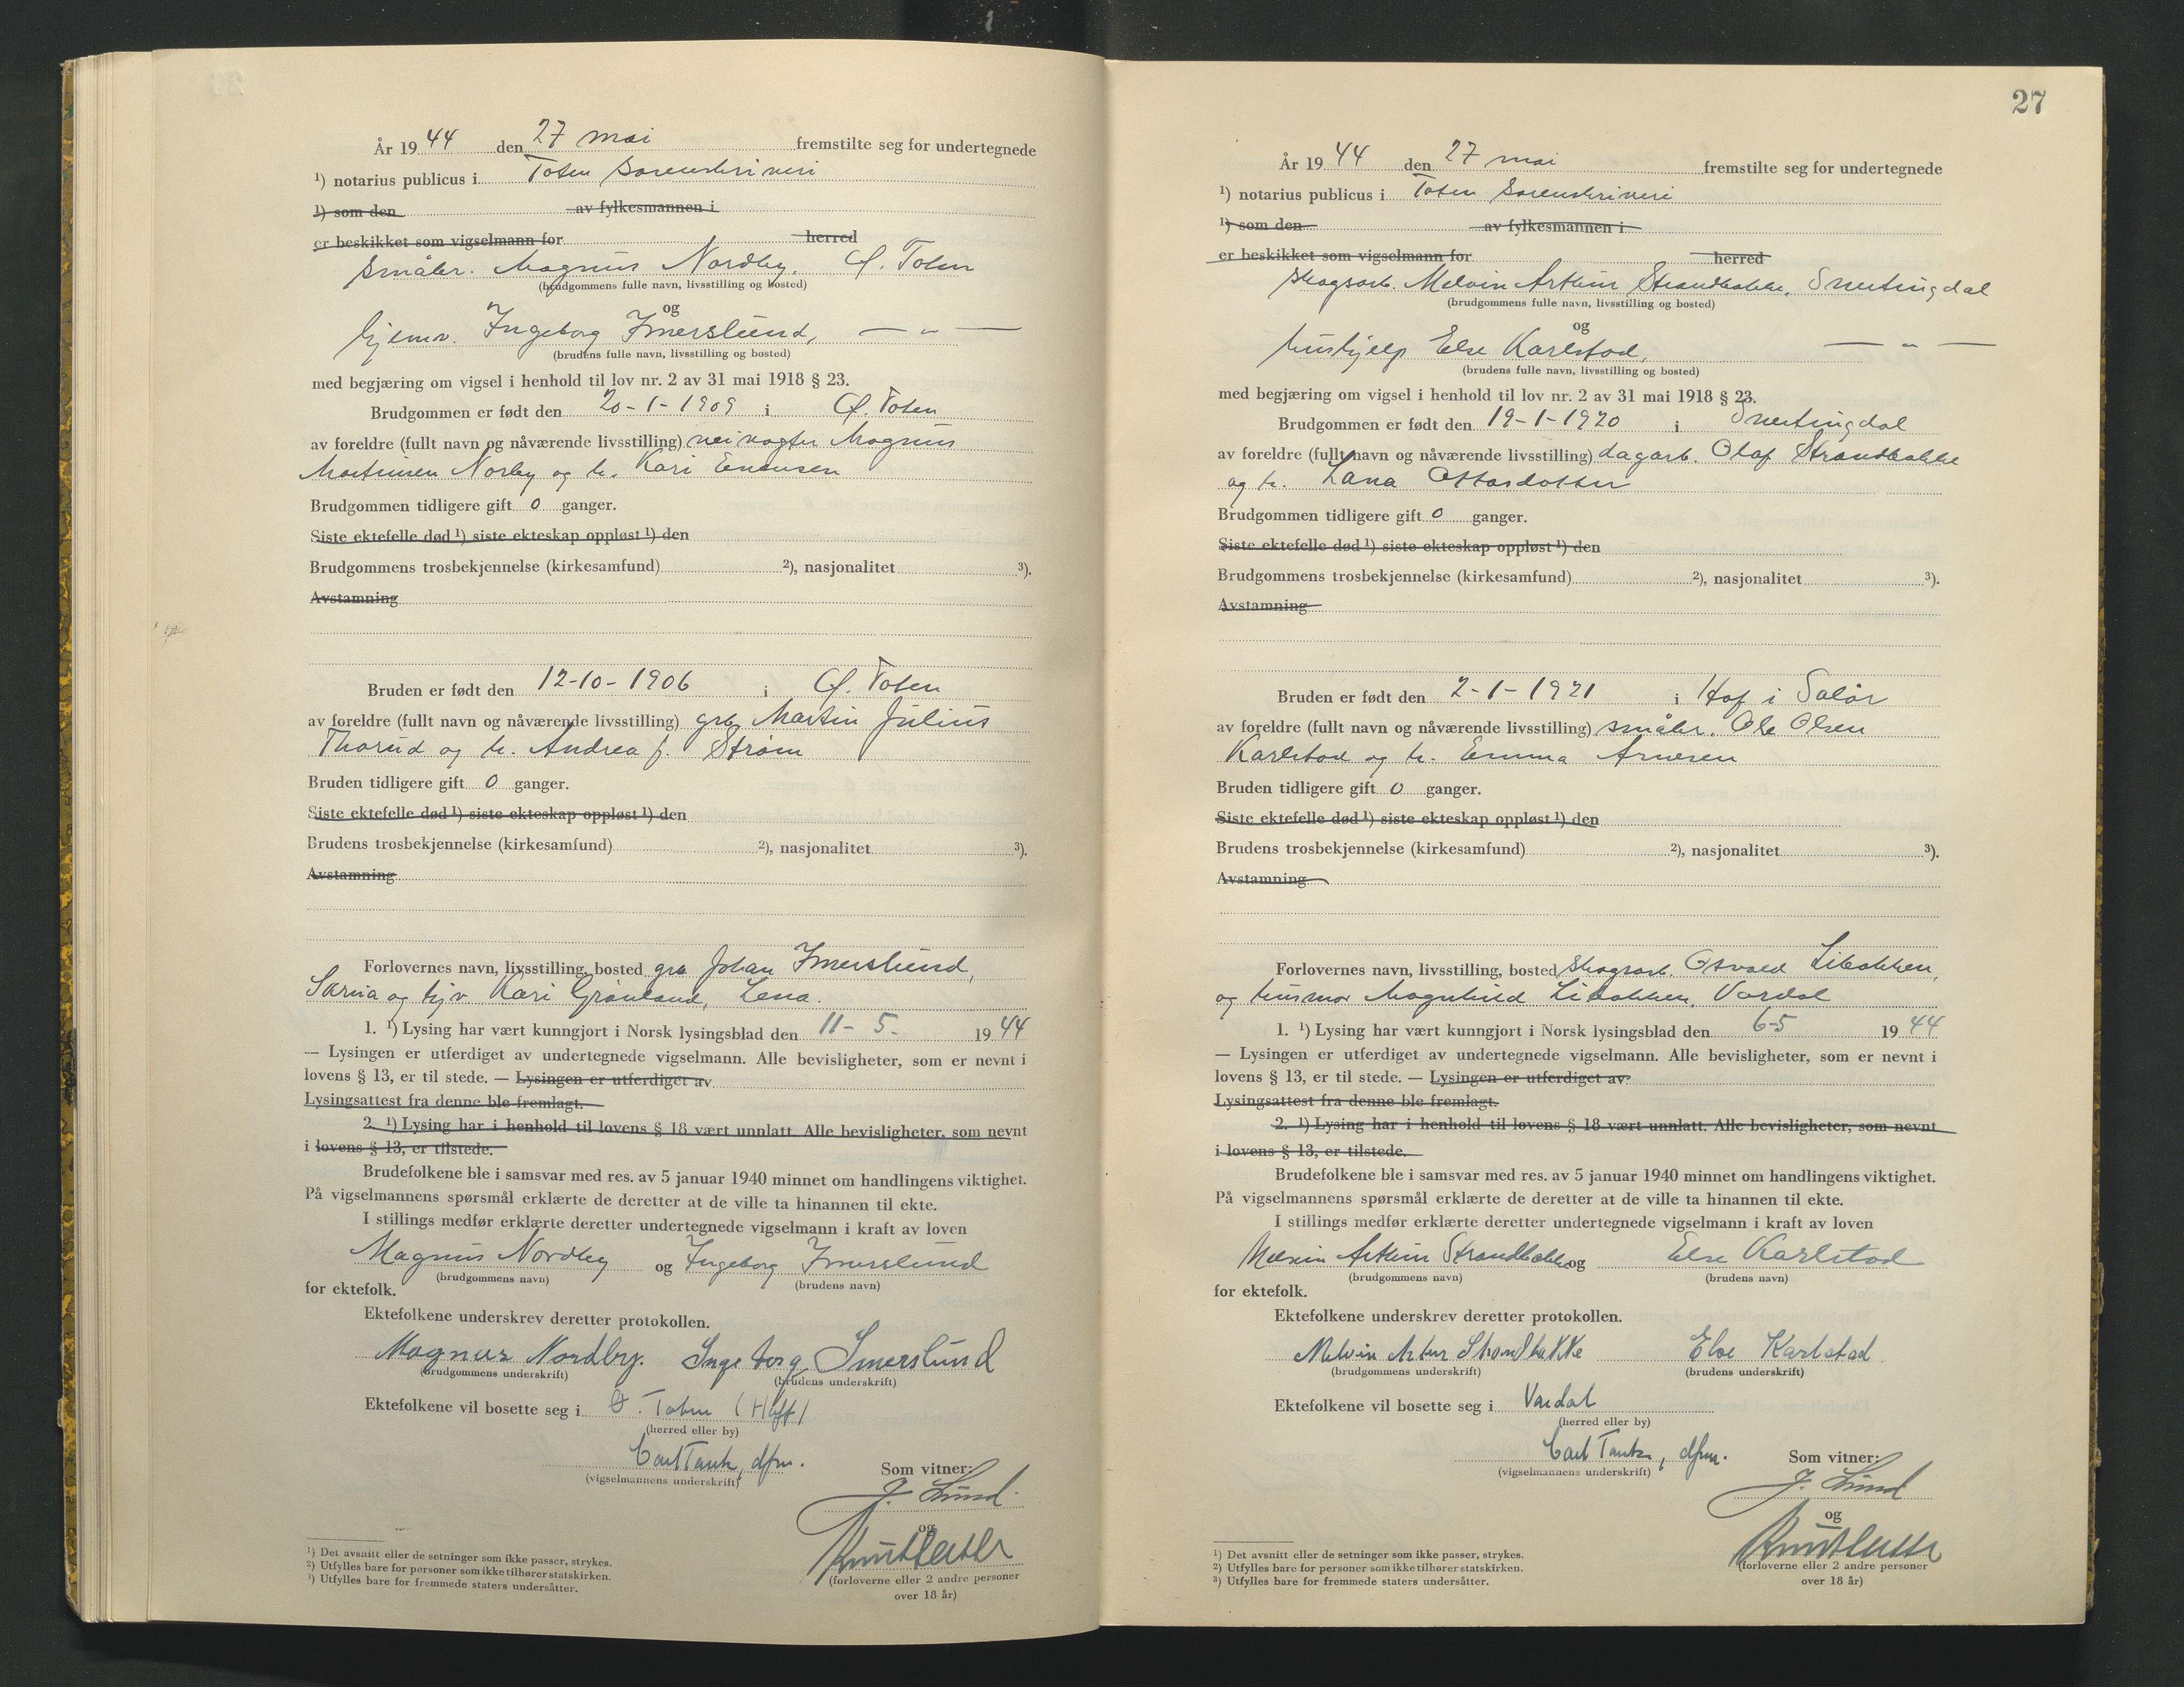 År 1944 den 27 mai fremstilte seg for undertegnede
¹) notarius publicus i Toten Sorenskriveri
¹) som den av fylkesmannen i
er beskikket som vigselmann for herred
Småbr. Magnus Nordby, Ø. Toten
(brudgommens fulle navn, livsstilling og bosted)
og
hjemv. Ingeborg Imerslund, — " —
(brudens fulle navn, livsstilling og bosted)
med begjæring om vigsel i henhold til lov nr. 2 av 31 mai 1918 § 23.
Brudgommen er født den 20-1-1909 i Ø. Toten
av foreldre (fullt navn og nåværende livsstilling) veivogter Magnus
Martinsen Norby og h. Kari Evensen
Brudgommen tidligere gift 0 ganger.
Siste ektefelle død ¹) siste ekteskap oppløst ¹) den
Brudgommens trosbekjennelse (kirkesamfund) ²), nasjonalitet ³).
Avstamning
Bruden er født den 12-10-1906 i Ø. Toten
av foreldre (fullt navn og nåværende livsstilling) grb. Martin Julius
Thorud og h. Andrea f. Strøm
Bruden tidligere gift 0 ganger.
Siste ektefelle død ¹) siste ekteskap oppløst ¹) den
Brudens trosbekjennelse (kirkesamfund) ²), nasjonalitet ³).
Avstamning
Forlovernes navn, livsstilling, bosted grb. Johan Imerslund,
og hjv. Kari Grønland, Lena.
1. ¹) Lysing har vært kunngjort i Norsk lysingsblad den 11-5- 1944
— Lysingen er utferdiget av undertegnede vigselmann. Alle bevisligheter, som er nevnt i
lovens § 13, er til stede. — Lysingen er utferdiget av
Lysingsattest fra denne ble fremlagt.
2. ¹) Lysing har i henhold til lovens § 18 vært unnlatt. Alle bevisligheter, som nevnt
i lovens § 13, er tilstede.
Brudefolkene ble i samsvar med res. av 5 januar 1940 minnet om handlingens viktighet.
På vigselmannens spørsmål erklærte de deretter at de ville ta hinannen til ekte.
I stillings medfør erklærte deretter undertegnede vigselmann i kraft av loven
Magnus Nordby og Ingeborg Imerslund
(brudgommens navn) (brudens navn)
for ektefolk.
Ektefolkene underskrev deretter protokollen.
Magnus Nordby. Ingeborg Imerslund
(brudgommens underskrift) (brudens underskrift)
Ektefolkene vil bosette seg i Ø. Toten
(herred eller by)
Carl Tank, dfm.
(vigselmannens underskrift)
Som vitner:
J. Lund
og
(forloverne eller 2 andre personer
over 18 år)
¹) Det avsnitt eller de setninger som ikke passer, strykes.
²) Utfylles bare for personer som ikke tilhører statskirken.
³) Utfylles bare for fremmede staters undersåtter.
27
År 1944 den 27 mai fremstilte seg for undertegnede
¹) notarius publicus i Toten Sorenskriveri
¹) som den av fylkesmannen i
er beskikket som vigselmann for herred
skogsarb. Melvin Arthur Strandbakke, Snertingdal
(brudgommens fulle navn, livsstilling og bosted)
og
hushjelp Else Karlstad, — " —
(brudens fulle navn, livsstilling og bosted)
med begjæring om vigsel i henhold til lov nr. 2 av 31 mai 1918 § 23.
Brudgommen er født den 19-1-1920 i Snertingdal
av foreldre (fullt navn og nåværende livsstilling) dagarb. Olaf Strandbakke
og h. Lana Ottosdotter
Brudgommen tidligere gift 0 ganger.
Siste ektefelle død ¹) siste ekteskap oppløst ¹) den
Brudgommens trosbekjennelse (kirkesamfund) ²), nasjonalitet ³).
Avstamning
Bruden er født den 2-1-1921 i Hof i Solør
av foreldre (fullt navn og nåværende livsstilling) småbr. Ole Olsen
Karlstad og h. Emma Arnesen
Bruden tidligere gift 0 ganger.
Siste ektefelle død ¹) siste ekteskap oppløst ¹) den
Brudens trosbekjennelse (kirkesamfund) ²), nasjonalitet ³).
Avstamning
Forlovernes navn, livsstilling, bosted skogsarb. Osvald Libakken,
og husmor Magnhild Libakken, Vardal
1. ¹) Lysing har vært kunngjort i Norsk lysingsblad den 6-5 1944
— Lysingen er utferdiget av undertegnede vigselmann. Alle bevisligheter, som er nevnt i
lovens § 13, er til stede. — Lysingen er utferdiget av
Lysingsattest fra denne ble fremlagt.
2. ¹) Lysing har i henhold til lovens § 18 vært unnlatt. Alle bevisligheter, som nevnt
i lovens § 13, er tilstede.
Brudefolkene ble i samsvar med res. av 5 januar 1940 minnet om handlingens viktighet.
På vigselmannens spørsmål erklærte de deretter at de ville ta hinannen til ekte.
I stillings medfør erklærte deretter undertegnede vigselmann i kraft av loven
Melvin Arthur Strandbakke og Else Karlstad
(brudgommens navn) (brudens navn)
for ektefolk.
Ektefolkene underskrev deretter protokollen.
Melvin Artur Strandbakke Else Karlstad
(brudgommens underskrift) (brudens underskrift)
Ektefolkene vil bosette seg i Vardal
(herred eller by)
Carl Tank, dfm.
(vigselmannens underskrift)
Som vitner:
J. Lund
og
(forloverne eller 2 andre personer
over 18 år)
¹) Det avsnitt eller de setninger som ikke passer, strykes.
²) Utfylles bare for personer som ikke tilhører statskirken.
³) Utfylles bare for fremmede staters undersåtter.